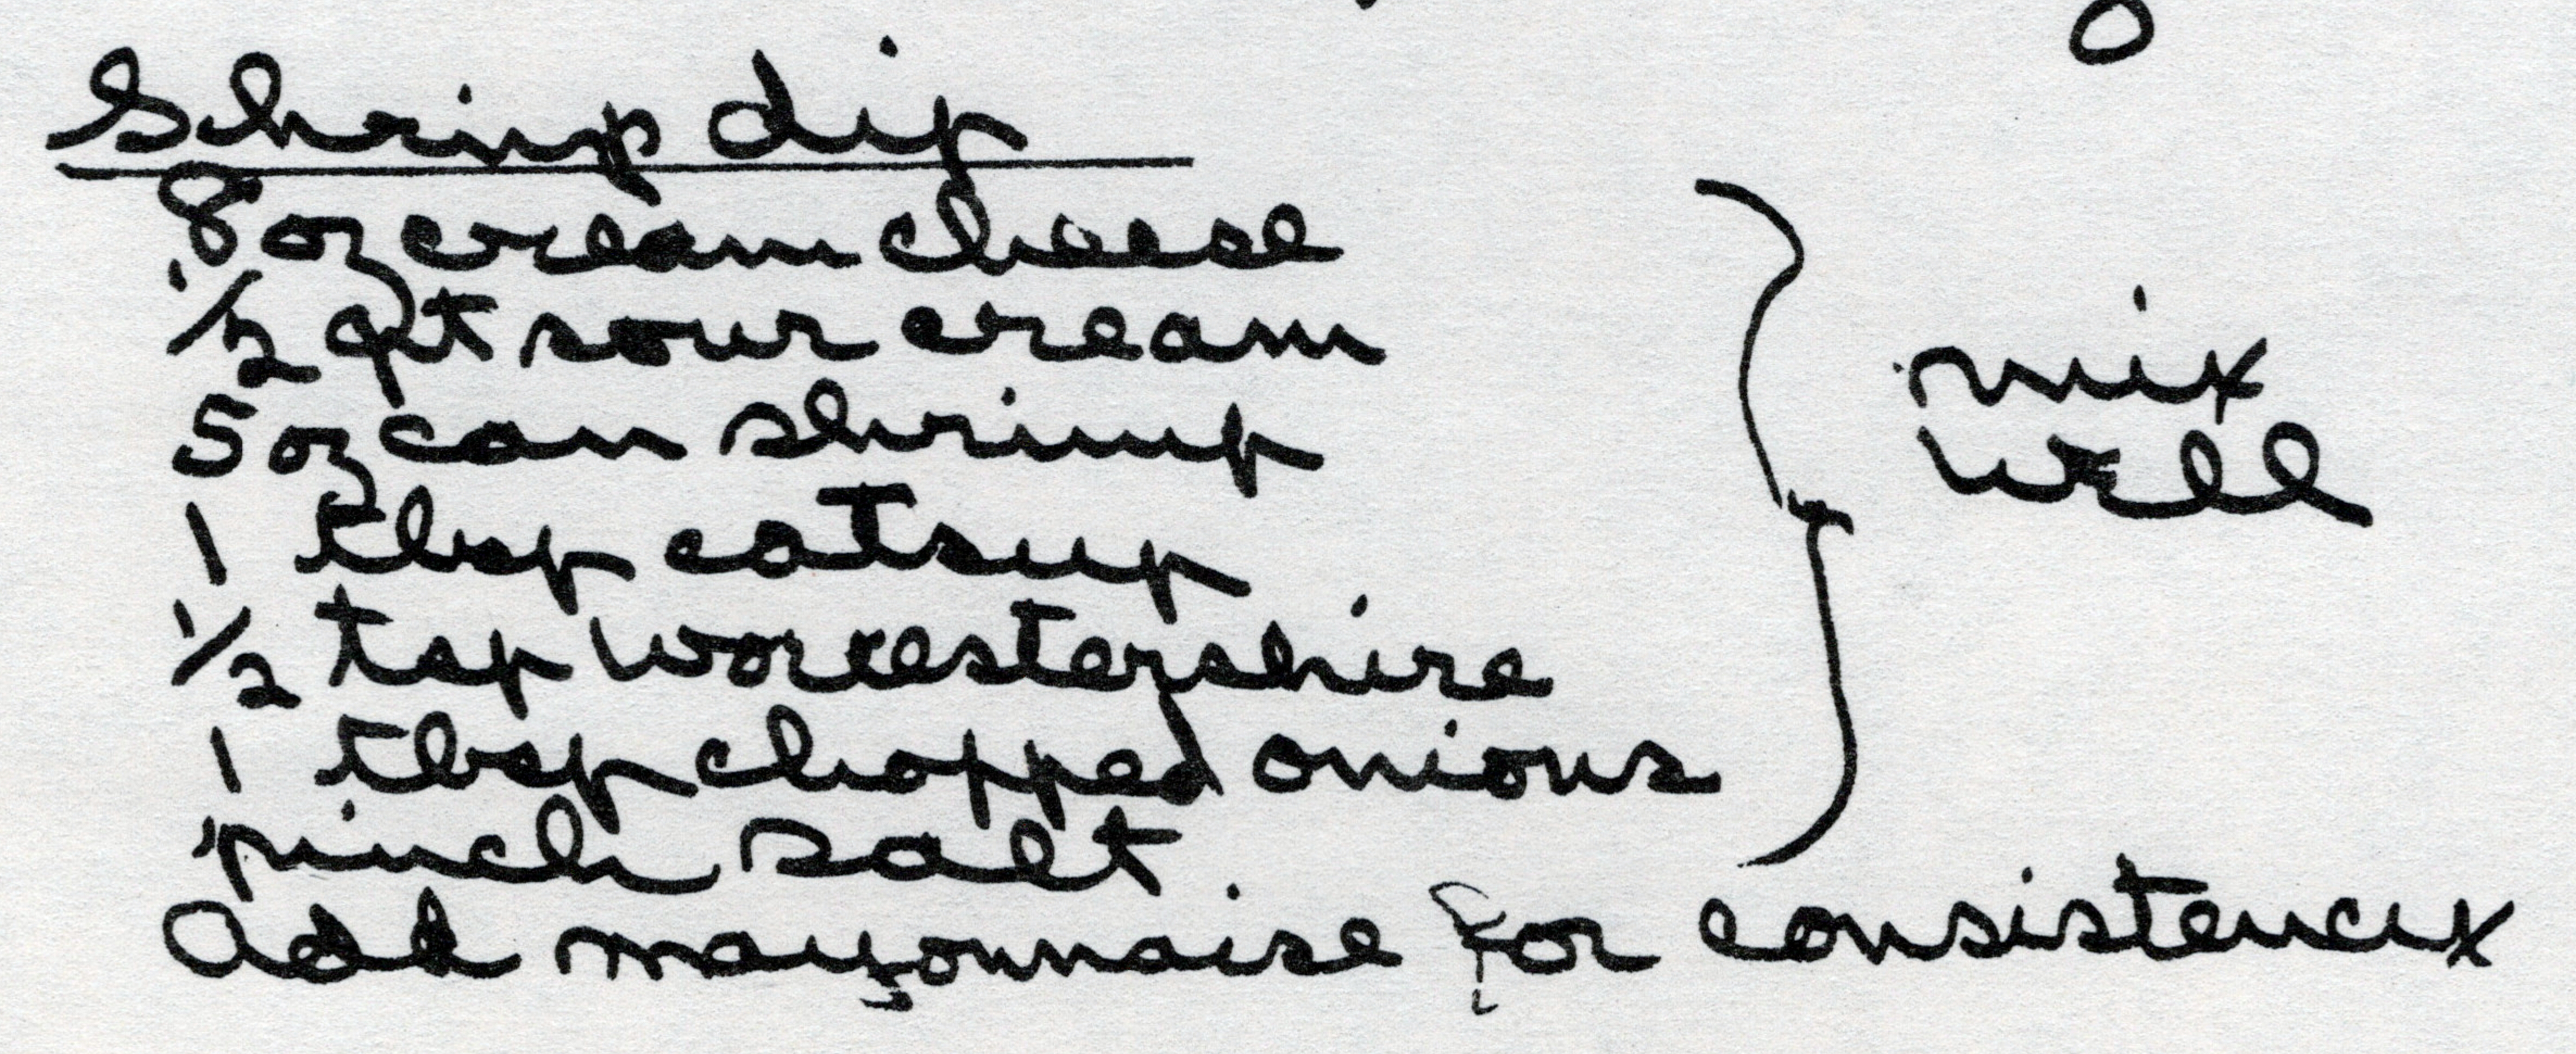 Shrimp dip
8 oz cream cheese
1/2 pt sour cream
5 oz can shrimp
1 tbsp catsup
1/2 tsp Worcestershire
1 tbsp chopped onions
pinch salt
mix
well
Add mayonnaise for consistency